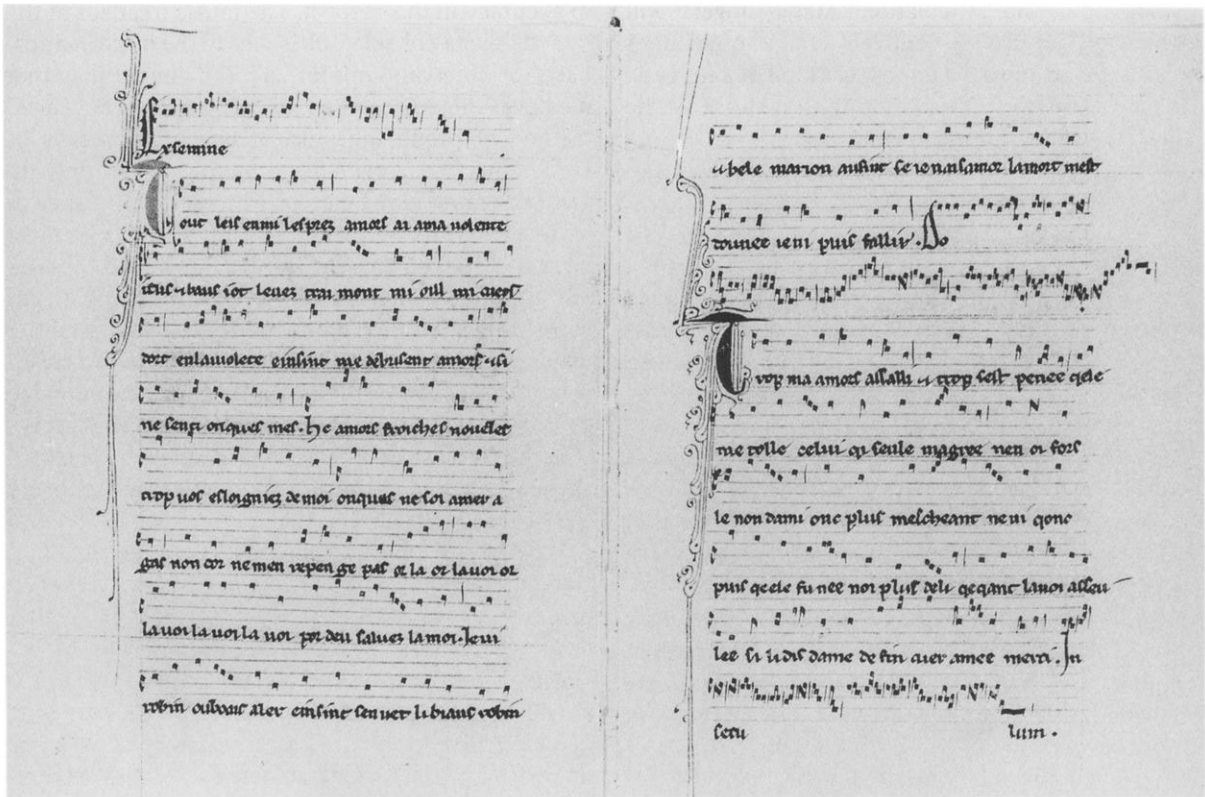 Ex semine
Tout leis enmi les prez amors ai a ma volente
dort en la violete einsint me debrisent amors si
ne senti onques mes. he amors froiches noveles
trop vos esloigniez de moi onques ne soi amer a
gas non cor ne men repen ge pas or la or la voi or
la voi la voi la voi por deu salvez la moi. Je vi
robin aler einsint sen vet li biaus robin
bele marion ausint se ie nai samor la mort mest
donnee ie ni puis fallir. Do
Trop ma amors assalli trop sest penee qele
me tolle celui qi seule magree nen oi fors
le non dami onc plus mescheant ne vi qonc
puis qele fu nee noi plus deli qeqant la voi asseu
lee si li dis dame de fin cuer amee merci. In
secu lum.